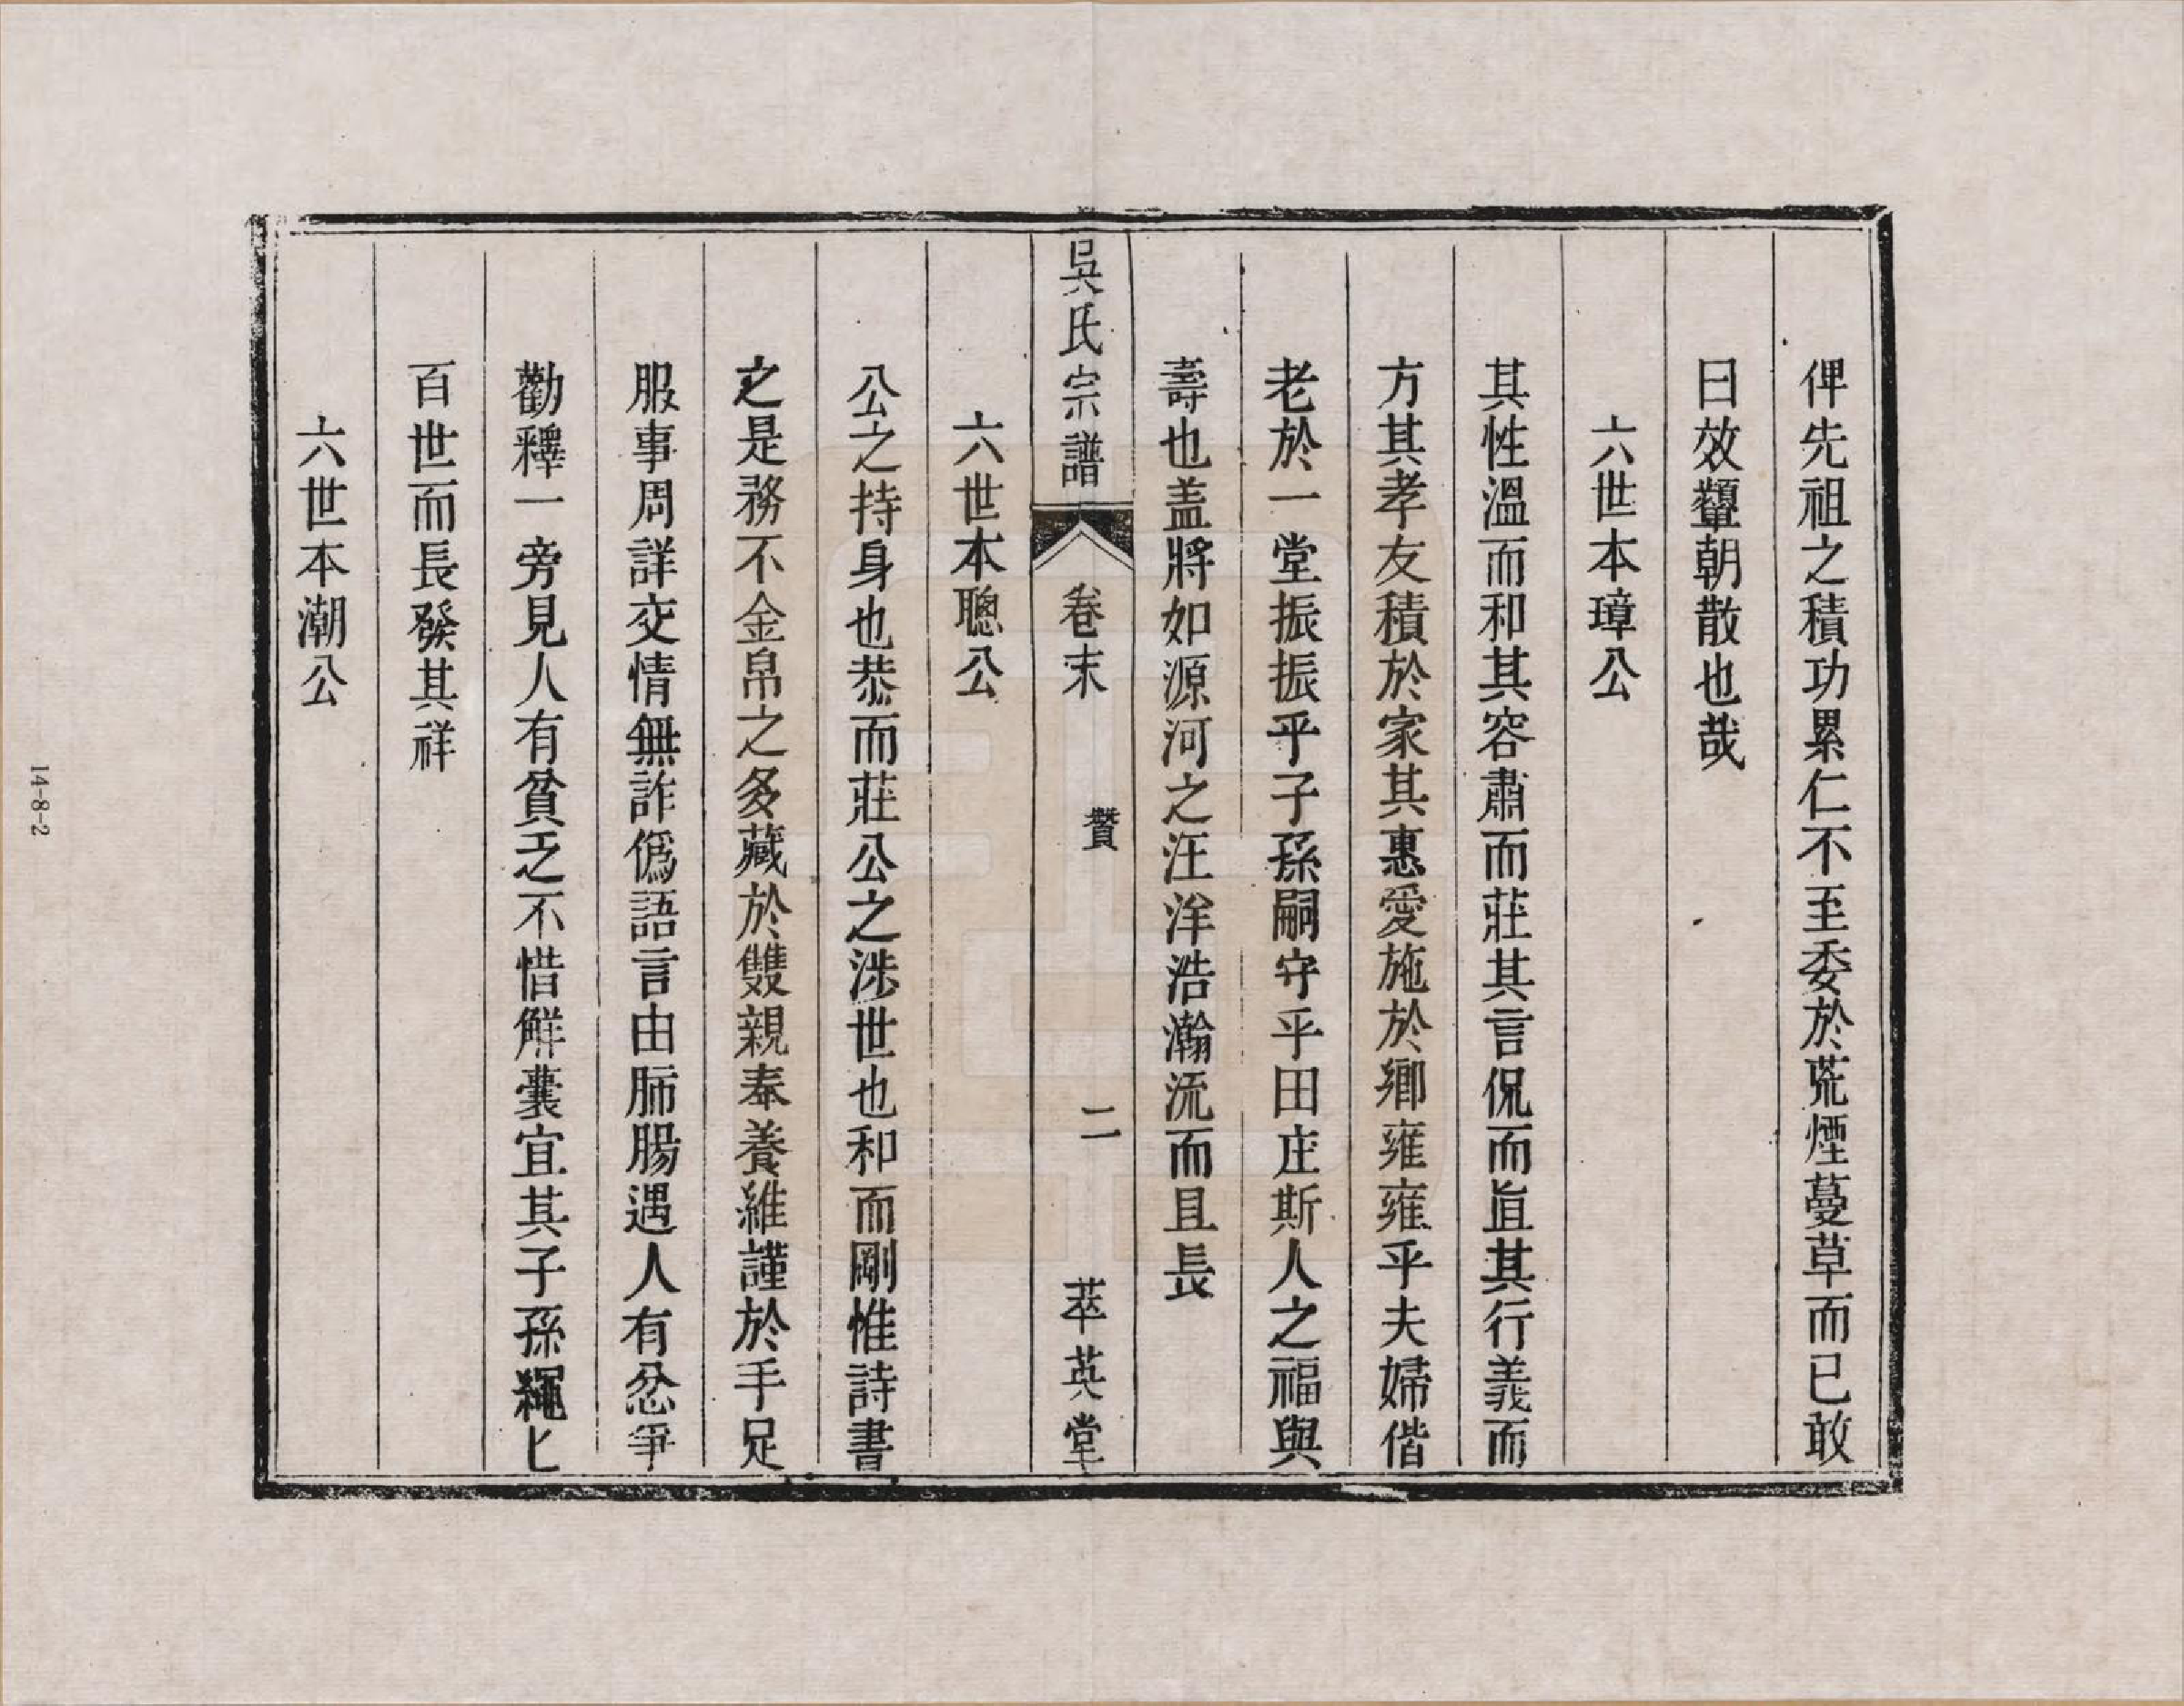 俾先祖之積功累仁不至委於荒煙蔓草而已敢
曰效顰朝散也哉
六世本璋公
其性溫而和其容肅而莊其言侃而直其行義而
方其孝友積於家其惠愛施於鄉雍雍乎夫婦偕
老於一堂振振乎子孫嗣守乎田庄斯人之福與
壽也盖將如源河之汪洋浩瀚流而且長
吳氏宗譜 卷末 贊 二 萃英堂
六世本聰公
公之持身也恭而莊公之涉世也和而剛惟詩書
之是務不金帛之多藏於雙親奉養維謹於手足
服事周詳交情無詐僞語言由肺腸遇人有忿爭
勸釋一旁見人有貧乏不惜解囊宜其子孫繩匕
百世而長發其祥
六世本潮公
14-8-2